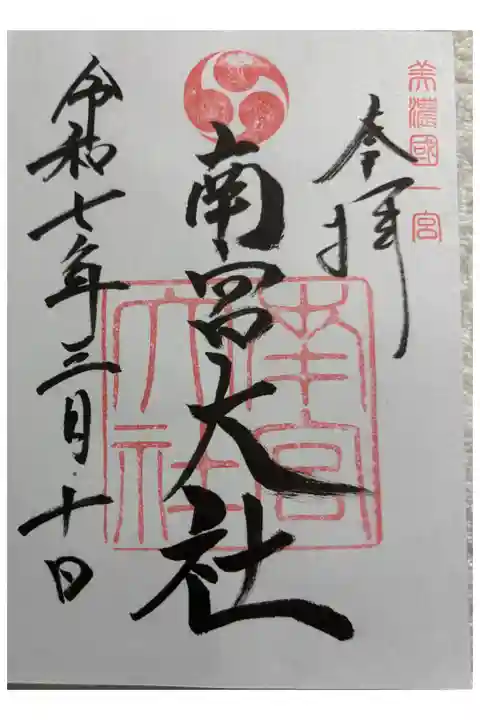 美濃國一宮
奉拝
南宮大社
南宮大社
令和七年三月十日